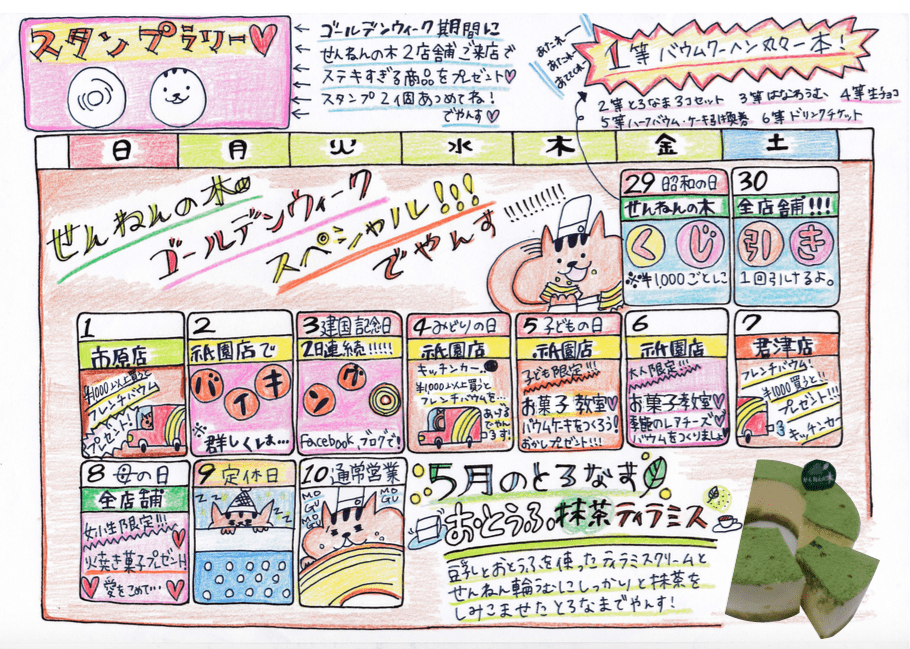 スタンプラリー♡
← ゴールデンウィーク期間に
← せんねんの木2店舗ご来店で
← ステキすぎる商品をプレゼント♡
← スタンプ2個あつめてね!
← でやんす♡
あたれー
あたれー
1等バウムクーヘン丸々一本!
2等とろなま3コセット 3等はなおうむ 4等生チョコ
5等ハーフバウム・ケーキ引換券 6等ドリンクチケット
日 月 火 水 木 金 土
せんねんの木
ゴールデンウィーク
スペシャル!!!
でやんす!!!!!!!!!!
29 昭和の日
せんねんの木
くじ
※¥1,000ごとに
30
全店舗!!!
引き
1回引けるよ。
1
市原店
¥1000以上買うと
フレンチバウム
プレゼント!
2
祇園店で
バイキ
※
詳しくは…
3 建国記念日
2日連続!!!!!
ング
Facebook ブログで!
4 みどりの日
祇園店
キッチンカー
¥1000以上買うと
フレンチバウムを…
あげるでやんす!
5 子どもの日
祇園店
子ども限定!!!
お菓子教室♡
バウムケーキをつくろう!
おかしプレゼント!!!
6
祇園店
大人限定!!!
お菓子教室♡
季節のレアチーズ♡
バウムをつくりましょ♡
7
君津店
フレンチバウム!
¥1000買うと!!
プレゼント!!!
キッチンカー
8 母の日
全店舗
女性限定!!!
焼き菓子プレゼント
愛をこめて…
9 定休日
ZZ
ZZ
10 通常営業
MOGU
MOGU
MOGU
5月のとろなま
おとうふ。抹茶ティラミス
豆乳とおとうふを使ったティラミスクリームと
せんねん輪うむにしっかりと抹茶を
しみこませたとろなまでやんす!
せんねんの木